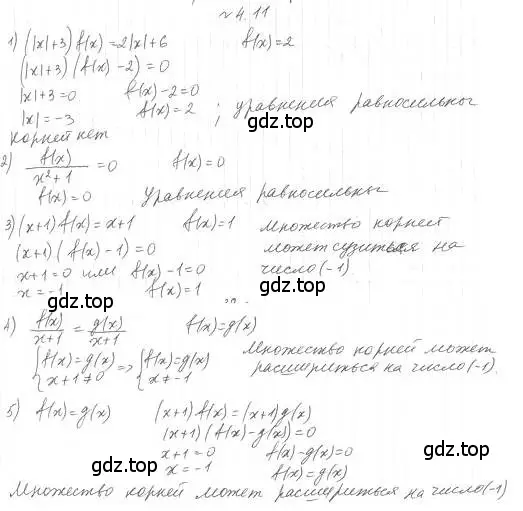 № 4.11
1) (|x|+3) f(x) = 2|x|+6 f(x)=2
(|x|+3) (f(x)-2) = 0
|x|+3=0 f(x)-2=0
|x|=-3 f(x)=2 ; уравнения равносильны
корней нет
gdz.top
gdz.top
2) f(x)/(x²+1) = 0 f(x)=0
f(x)=0 уравнения равносильны
3) (x+1) f(x) = x+1 f(x)=1 множество корней
(x+1) (f(x)-1) = 0 может сузиться на
x+1=0 или f(x)-1=0 число (-1).
x=-1 f(x)=1
gdz.top
gdz.top
4) f(x)/(x+1) = g(x)/(x+1) f(x)=g(x)
{f(x)=g(x) => {f(x)=g(x) Множество корней может
{x+1≠0 {x≠-1 расшириться на число (-1).
gdz.top
5) f(x)=g(x) (x+1) f(x)=(x+1) g(x)
(x+1) (f(x)-g(x))=0
x+1=0 f(x)-g(x)=0
x=-1 f(x)=g(x)
gdz.top
gdz.top
Множество корней может расшириться на число (-1)